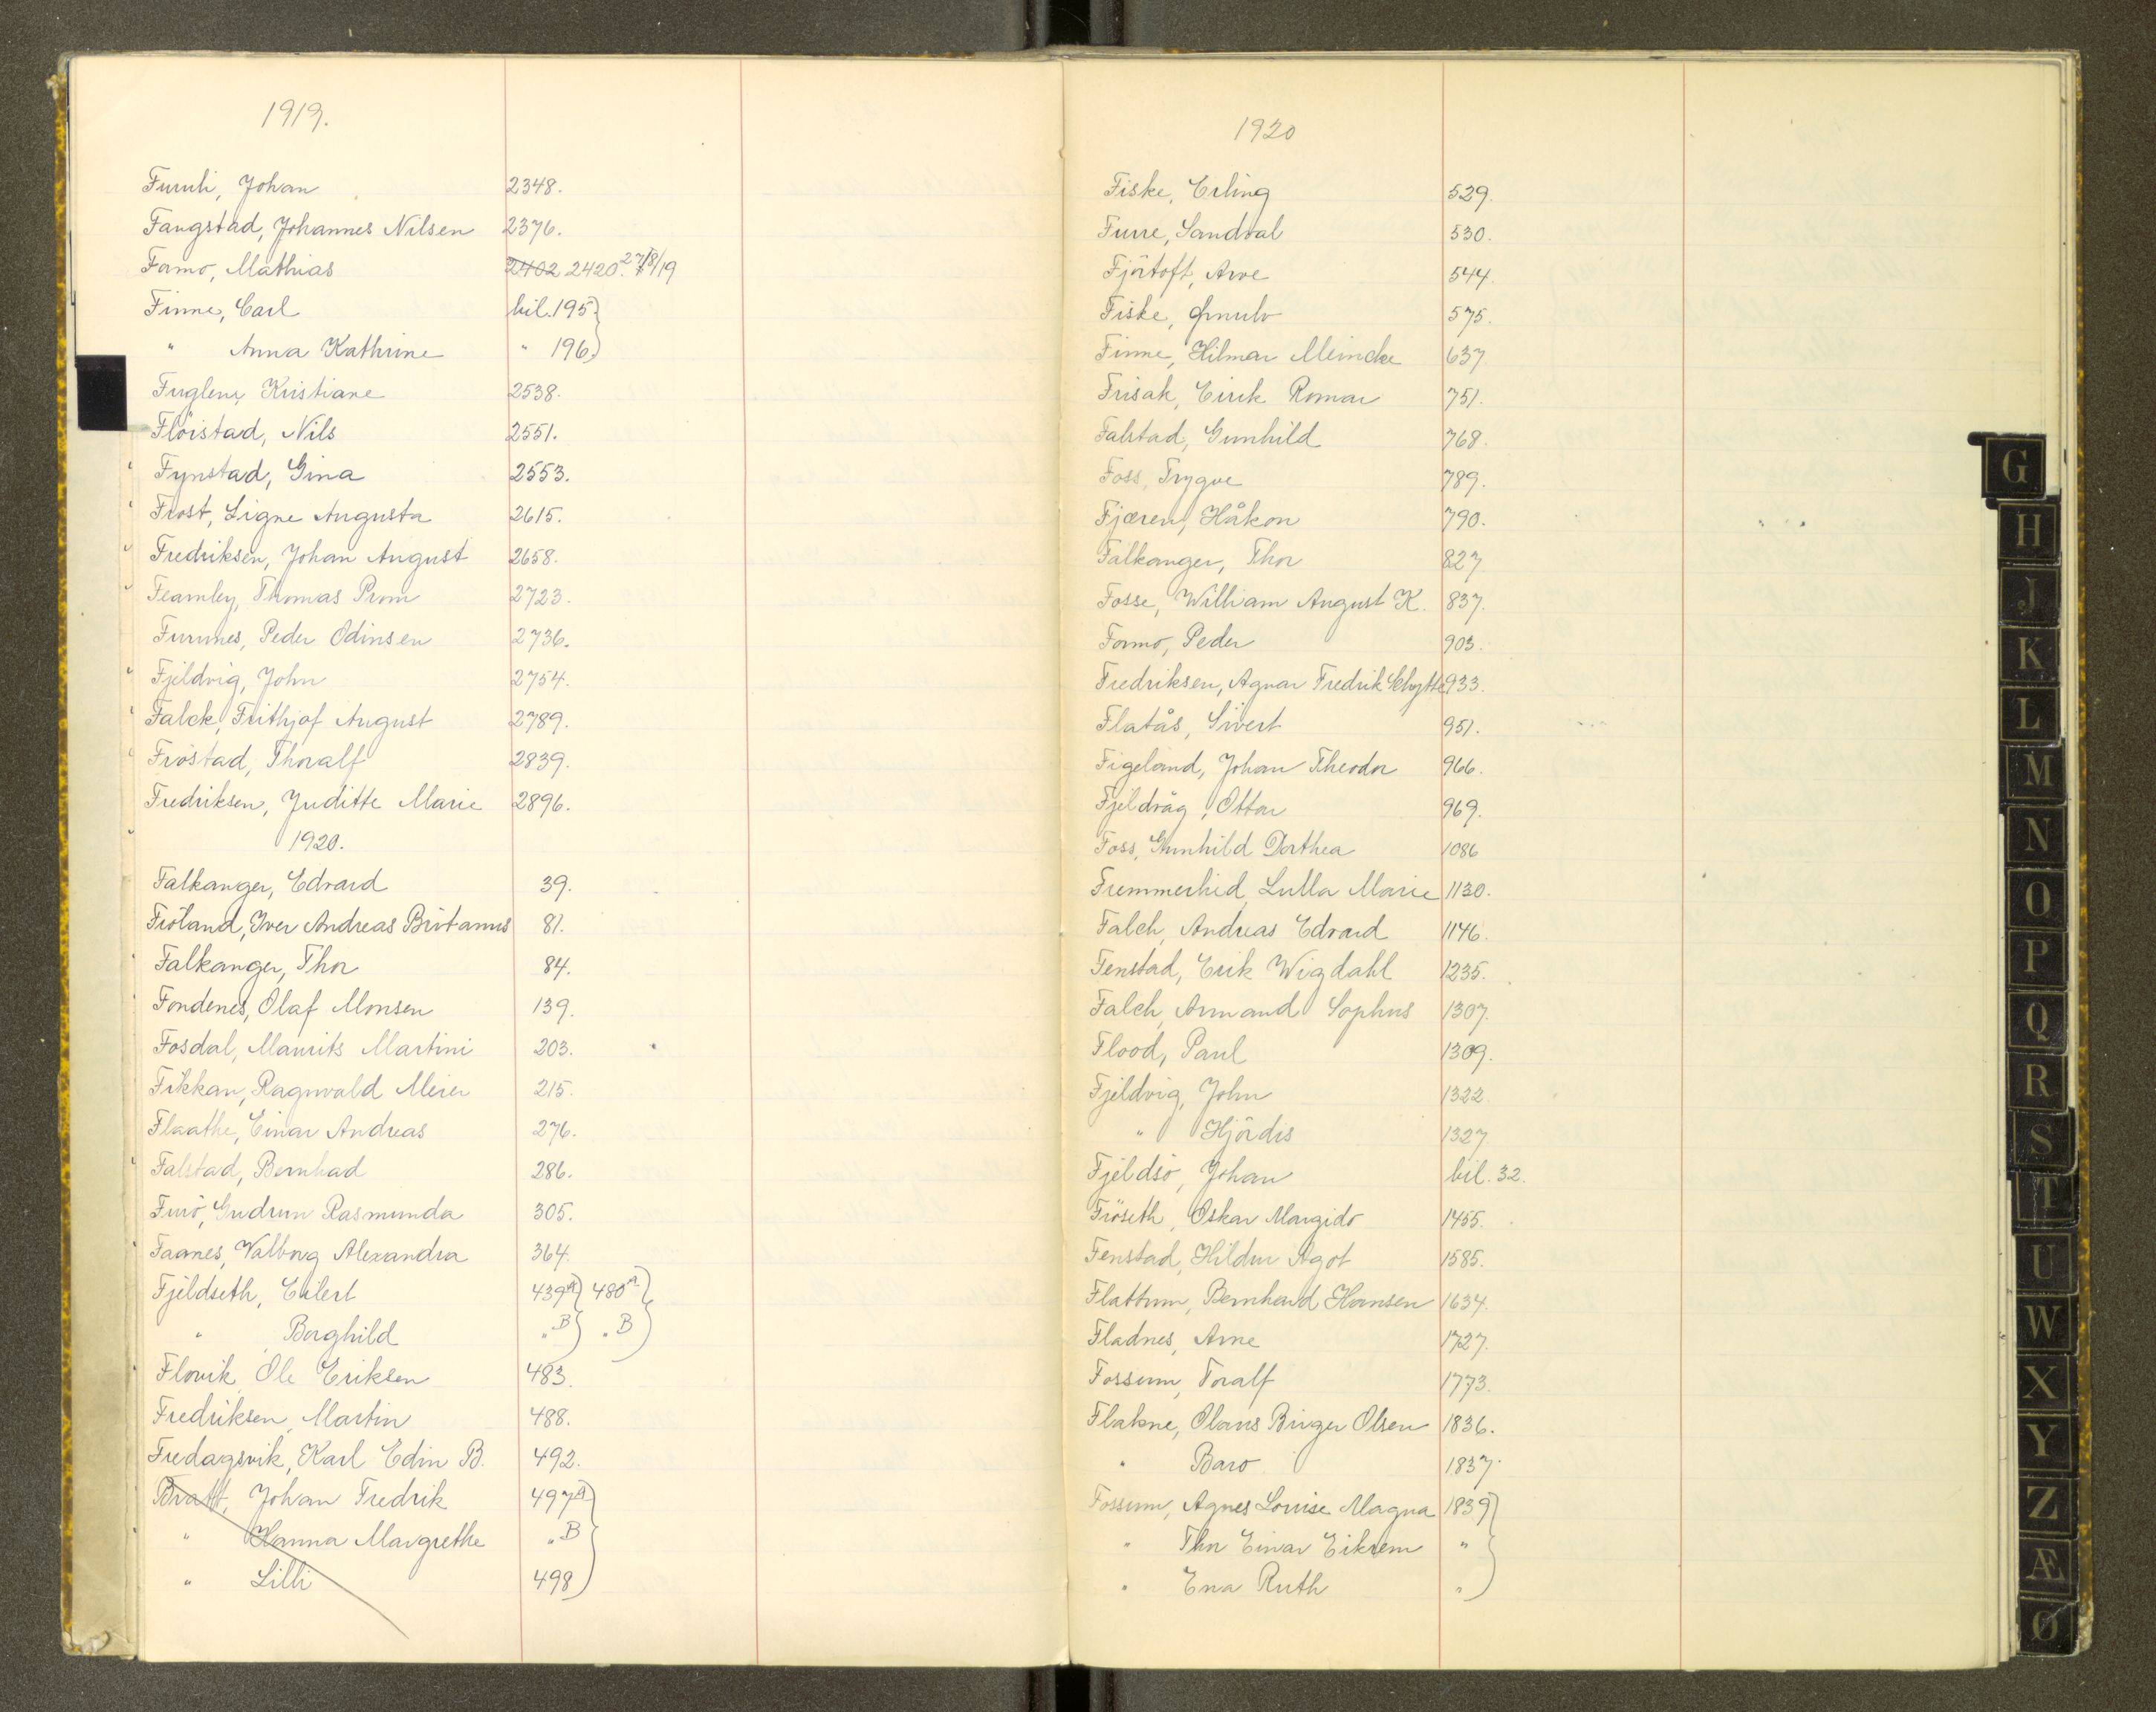 1919.
Furuli, Johan 2348.
Fangstad, Johannes Nilsen 2376.
Formo, Mathias 2402 2420. 27/8/19
Finne, Carl bil. 195
" Anna Kathrine " 196
Fuglem, Kristiane 2538.
Flöistad, Nils 2551.
Fynstad, Gina 2553.
Frost, Signe Augusta 2615.
Fredriksen, Johan August 2658.
Fearnley, Thomas Prom 2723.
Furunes, Peder Odinsen 2736.
Fjeldvig, John 2754.
Falck, Frithjof August 2789.
Fröstad, Thoralf 2839.
Fredriksen, Juditte Marie 2896.
1920.
Falkanger, Edvard 39.
Fröland, Iver Andreas Britanus 81.
Falkanger, Thor 84.
Fondenes, Olaf Monsen 139.
Fosdal, Maurits Martini 203.
Fikkan, Ragnvald Meier 215.
Flaathe, Einar Andreas 276.
Falstad, Bernhad 286.
Furö, Gudrun Rasmunda 305.
Faanes, Valborg Alexandra 364.
Fjeldseth, Eilert 439A 480A.
" Borghild "B "B
Flovik, Ole Eriksen 483.
Fredriksen, Martin 488.
Fredagsvik, Karl Edin B. 492.
Bratt, Johan Fredrik 497A
" Hanna Margrethe "B
" Lilli 498
1920
Fiske, Erling 529.
Furre, Sandval 530.
Fjörtoft, Arve 544.
Fiske, Ørnulv 575.
Finne, Hilmar Meincke 637.
Frisak, Eirik Romar 751.
Falstad, Gunhild 768.
Foss, Trygve 789.
Fjæren, Håkon 790.
Falkanger, Thor 827
Fosse, William August K. 837.
Formo, Peder 903.
Fredriksen, Agnar Fredrik Chytte 933.
Flatås, Sivert 951.
Figeland, Johan Theodor 966.
Fjeldvåg, Ottar 969.
Foss, Gunhild Dorthea 1086
Fremmerlid, Lulla Marie 1130.
Falch, Andreas Edvard 1146.
Fenstad, Erik Wigdahl 1235.
Falch, Armand Sophus 1307.
Flood, Paul 1309.
Fjeldvig, John 1322.
" Hjördis 1327
Fjeldsö, Johan bil. 32.
Fröseth, Oskar Margido 1455.
Fenstad, Hildur Agot 1585.
Flattum, Bernhard Hansen 1634.
Fladnes, Arne 1727.
Fossum, Toralf 1773.
Flakne, Olaus Birger Olsen 1836.
" Baro 1837.
Fossum, Agnes Louise Magna 1839
" Thor Einar Eikrem "
" Ena Ruth "
G
H
J
K
L
M
N
O
P
Q
R
S
T
U
W
X
Y
Z
Æ
Ø